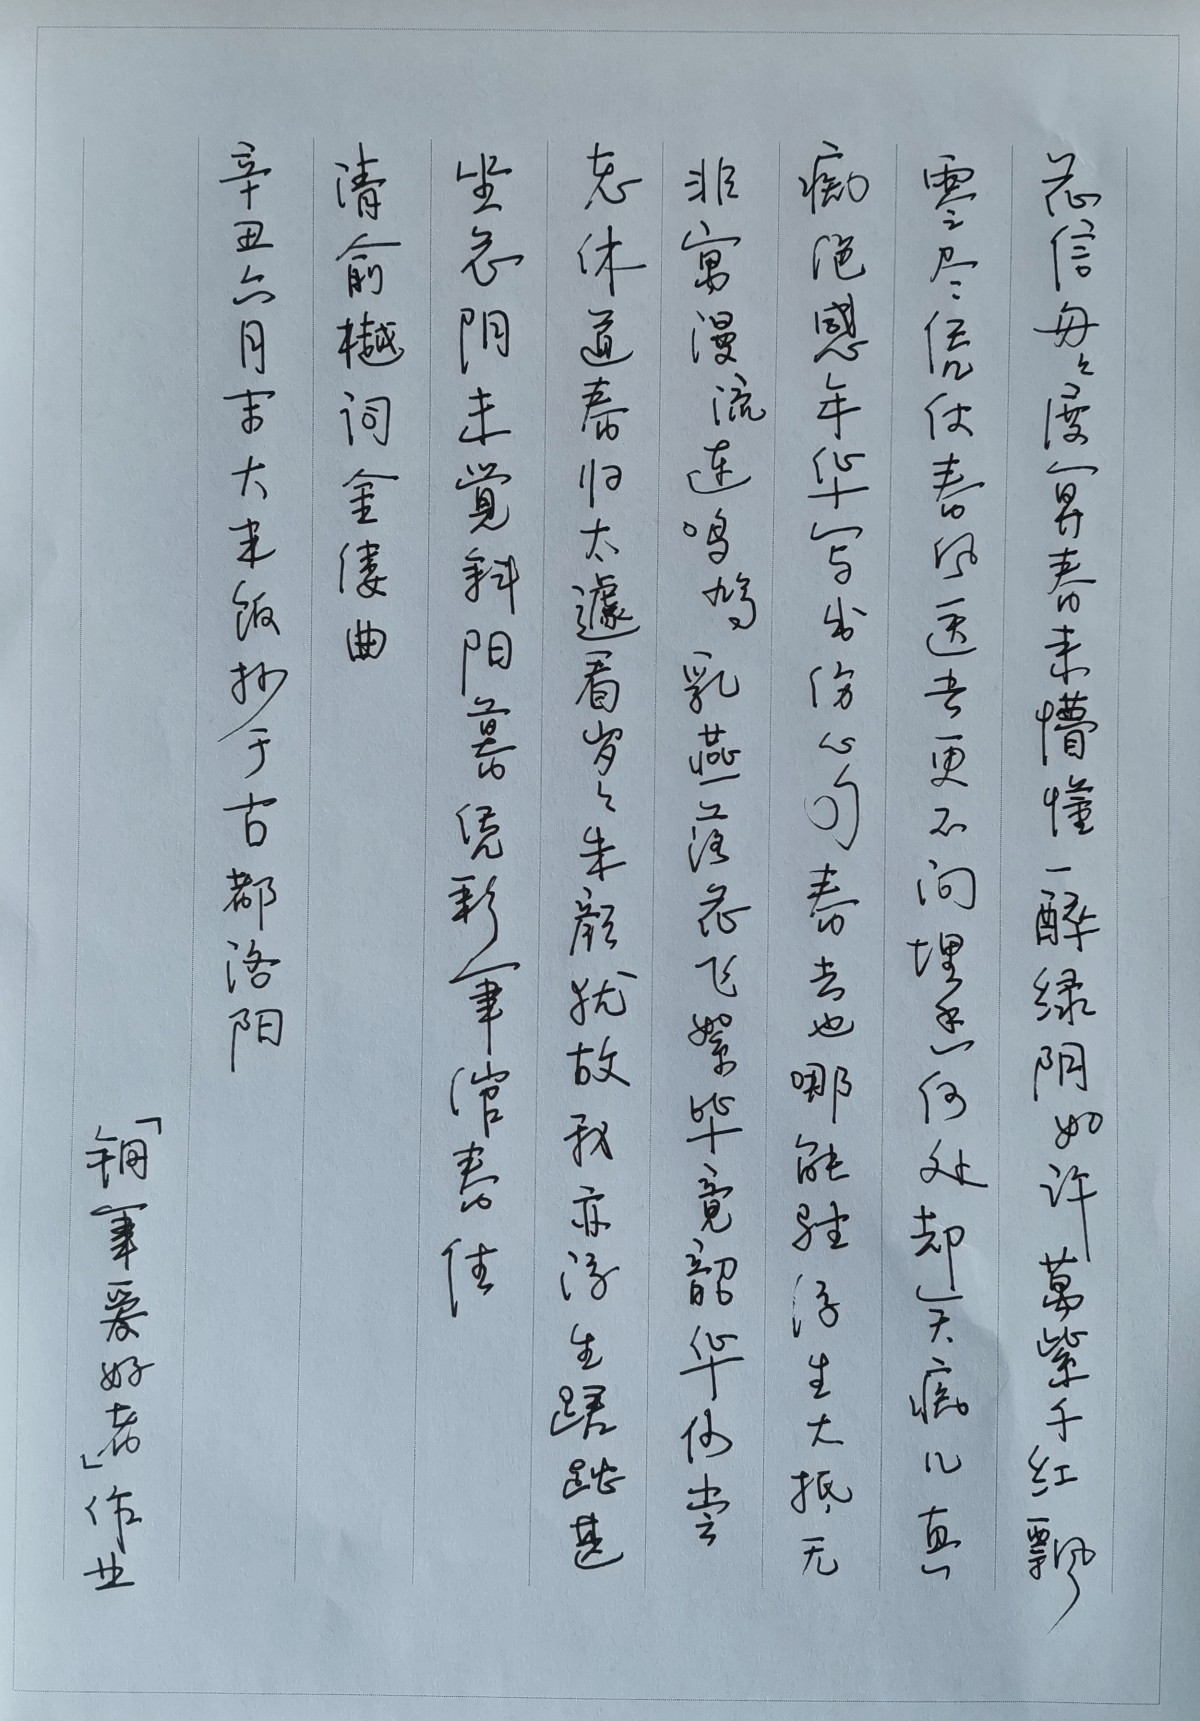 花信每々度算春来懵懂一醉绿阴如许萬紫千红飘
零尽凭仗春风送去更不问埋香何处却笑痴儿真
痴绝感年华写出伤心句春去也哪能驻浮生大抵无
非寓漫流连鸣鸠乳燕落花飞絮毕竟韶华何尝
老休道春归太遽看岁々朱颜犹故我亦浮生蹉跎甚
坐花阴未觉斜阳暮凭彩笔绾春住
清俞樾词金缕曲
辛丑六月末大米饭抄于古都洛阳
「钢笔爱好者」作业